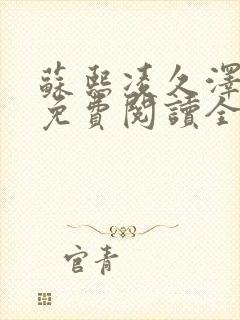 蘇熙凌久澤
免費閱讀全
官青